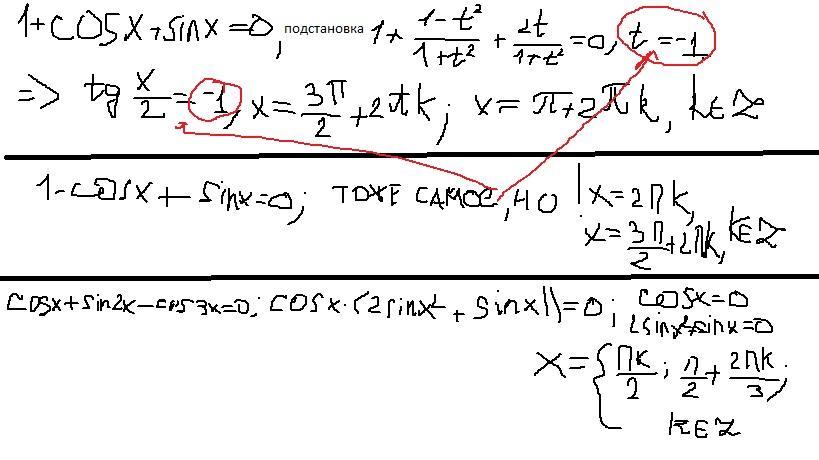 1+cosx+sinx=0, подстановка 1+ (1-t²)/(1+t²) + 2t/(1+t²) =0, t=-1
=> tg x/2 = -1, x= 3π/2 +2πk; x= π+2πk, k∈Z
1-cosx+sinx=0; ТОЖЕ САМОЕ, НО | x=2πk,
x= 3π/2 +2πk, k∈Z
cosx+sin2x-cos3x=0; cosx·(2sinx²+sinx))=0; cosx=0
2sinx²+sinx=0
x= { πk/2 ; π/2 + 2πk/3 ;
k∈Z